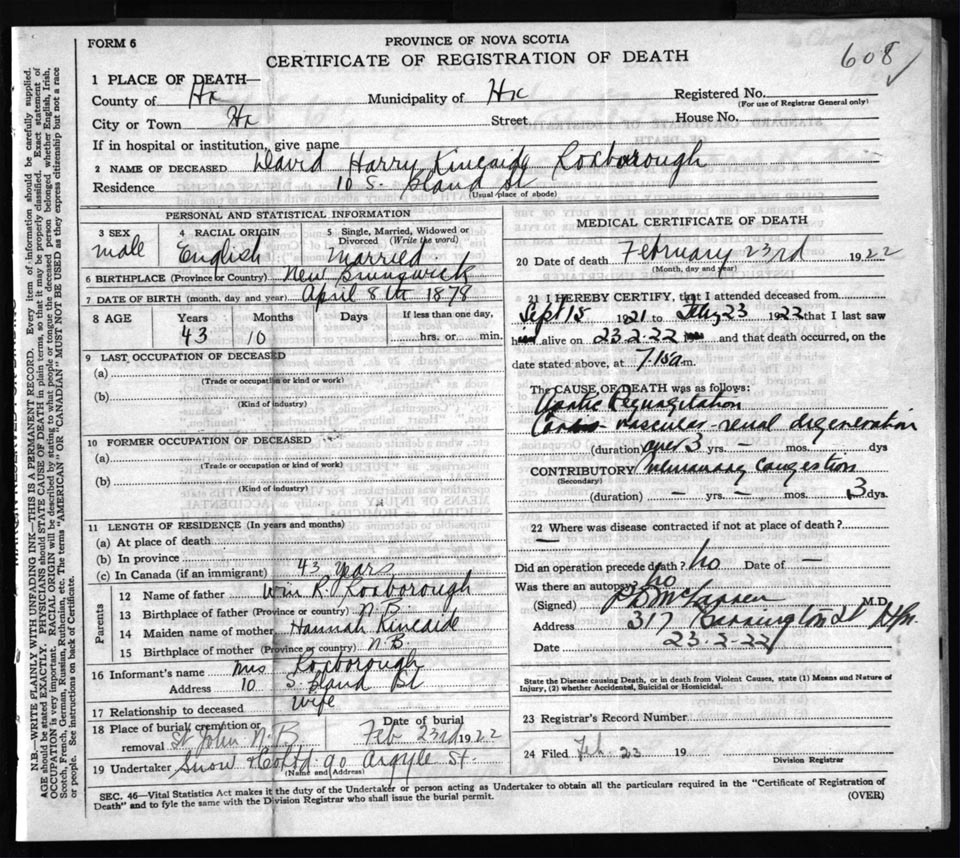 608 ✓
FORM 6
PROVINCE OF NOVA SCOTIA
CERTIFICATE OF REGISTRATION OF DEATH
1 PLACE OF DEATH—
County of Hx Municipality of Hx Registered No.
(For use of Registrar General only)
City or Town Hx Street. House No.
If in hospital or institution, give name
2 NAME OF DECEASED David Harry Kincaide Roxborough
Residence 10 S. Bland St
(Usual place of abode)
PERSONAL AND STATISTICAL INFORMATION
3 SEX 4 RACIAL ORIGIN 5 Single, Married, Widowed or Divorced (Write the word)
male English Married.
6 BIRTHPLACE (Province or Country) New Brunswick
7 DATE OF BIRTH (month, day and year) April 8th 1878
8 AGE Years Months Days If less than one day,
43 10 hrs. or min.
9 LAST OCCUPATION OF DECEASED
(a)
(Trade or occupation or kind of work)
(b)
(Kind of industry)
10 FORMER OCCUPATION OF DECEASED
(a)
(Trade or occupation or kind of work)
(b)
(Kind of industry)
11 LENGTH OF RESIDENCE (In years and months)
(a) At place of death
(b) In province
(c) In Canada (if an immigrant) 43 years
Parents
12 Name of father Wm R. Roxborough
13 Birthplace of father (Province or country) N.B.
14 Maiden name of mother Hannah Kincaide
15 Birthplace of mother (Province or country) N.B
16 Informant's name Mrs Roxborough
Address 10 S. Bland St
17 Relationship to deceased Wife
18 Place of burial, cremation or removal St John N.B Date of burial Feb 23rd 1922
19 Undertaker Snow & Co Ltd 90 Argyle St.
(Name and Address)
MEDICAL CERTIFICATE OF DEATH
20 Date of death February 23rd 1922
(Month, day and year)
21 I HEREBY CERTIFY, that I attended deceased from
Sept 15 1921 to Feb, 23 1922 that I last saw
h alive on 23-2-22 and that death occurred, on the
date stated above, at 7.15 a m.
The CAUSE OF DEATH was as follows:
Aortic Regurgitation
Cardio-vascular-renal degeneration
(duration) over 3 yrs. — mos. dys
CONTRIBUTORY Pulmonary Congestion
(Secondary)
(duration) — yrs. — mos. 3 dys.
22 Where was disease contracted if not at place of death?
—
Did an operation precede death? No Date of —
Was there an autopsy? No
(Signed) M.D.
Address 317 Barrington St Hfx.
Date 23-2-22
State the Disease causing Death, or in death from Violent Causes, state (1) Means and Nature of
Injury, (2) whether Accidental, Suicidal or Homicidal.
23 Registrar's Record Number
24 Filed Feb. 23 19
Division Registrar
SEC. 46—Vital Statistics Act makes it the duty of the Undertaker or person acting as Undertaker to obtain all the particulars required in the "Certificate of Registration of
Death" and to fyle the same with the Division Registrar who shall issue the burial permit. (OVER)
N.B.—WRITE PLAINLY WITH UNFADING INK—THIS IS A PERMANENT RECORD. Every item of information should be carefully supplied.
AGE should be stated EXACTLY. PHYSICIANS should STATE CAUSE OF DEATH in plain terms, so that it may be properly classified. Exact statement of
OCCUPATION is very important. RACIAL ORIGIN will be described by stating to what people or tongue the deceased person belonged whether English, Irish,
Scotch, French, German, Russian, Ruthenian, etc. The terms "AMERICAN" or "CANADIAN" MUST NOT BE USED as they express citizenship but not a race
or people. See instructions on back of Certificate.